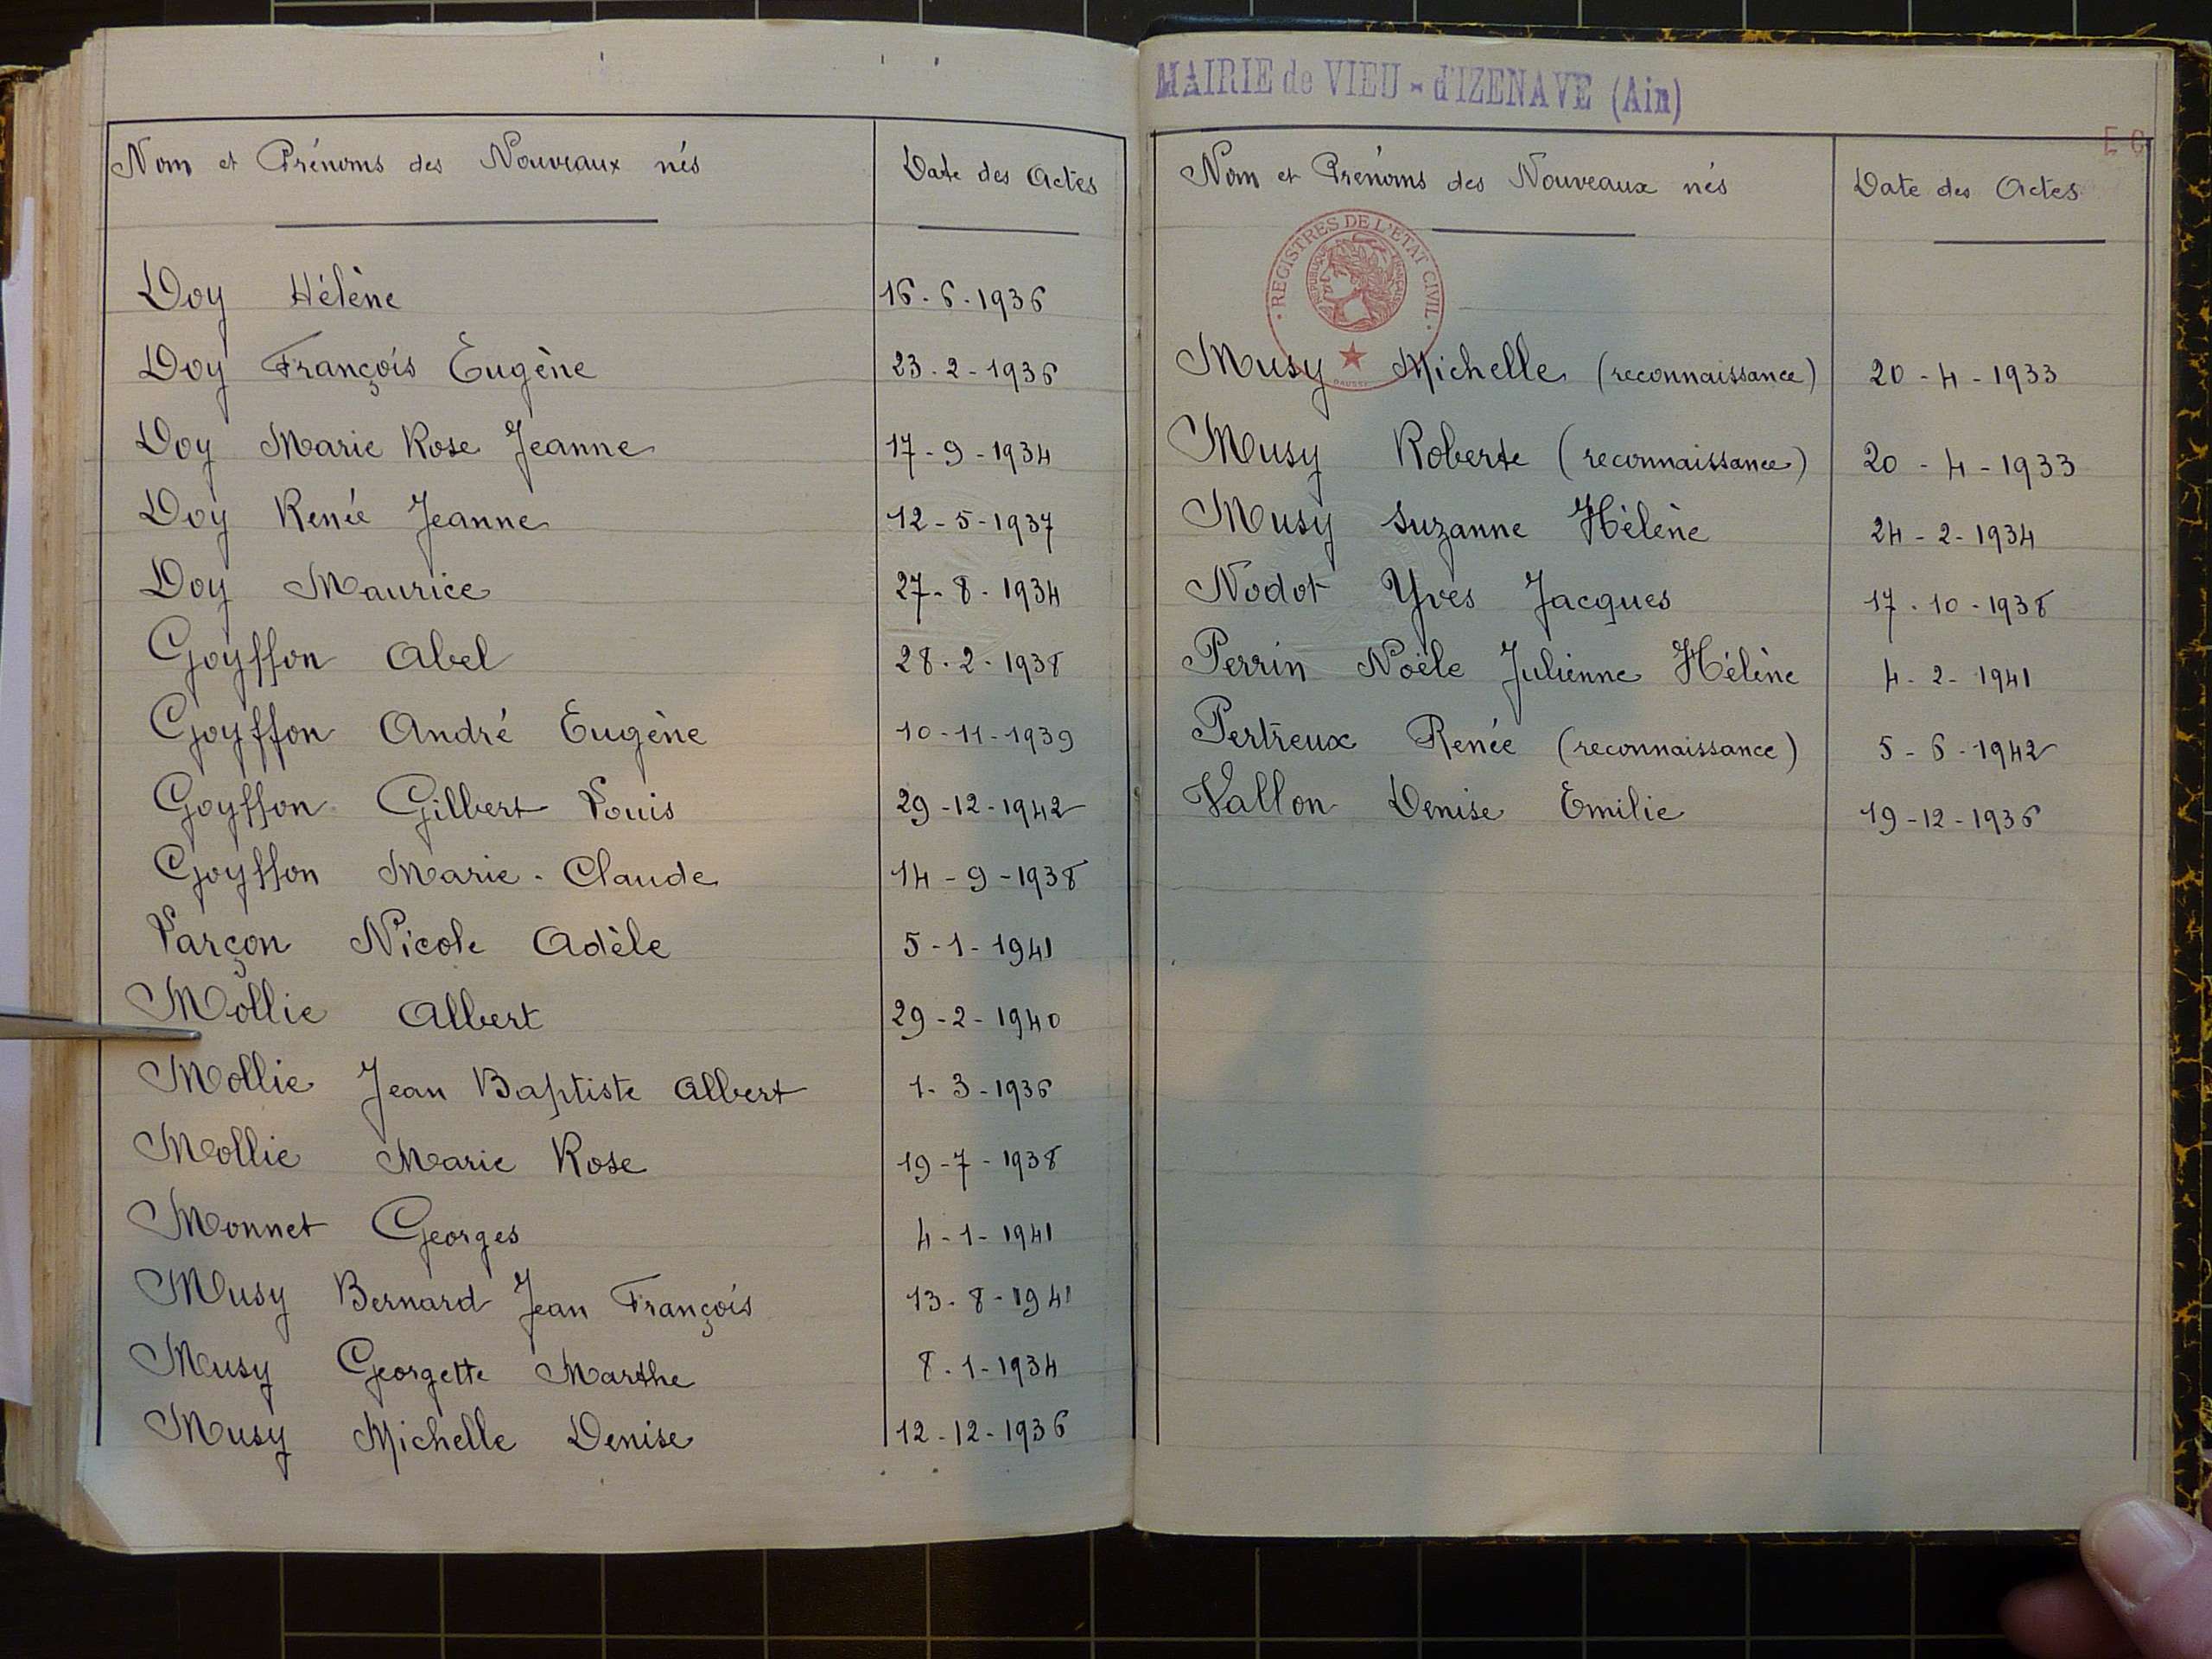 Nom et Prénoms des Nouveaux nés Date des Actes
Doy Hélène 16-6-1936
Doy François Eugène 23-2-1936
Doy Marie Rose Jeanne 17-9-1934
Doy Renée Jeanne 12-5-1937
Doy Maurice 27-8-1934
Goyffon Abel 28-2-1938
Goyffon André Eugène 10-11-1939
Goyffon Gilbert Louis 29-12-1942
Goyffon Marie-Claude 14-9-1938
Larçon Nicole Adèle 5-1-1941
Mollie Albert 29-2-1940
Mollie Jean Baptiste Albert 1-3-1936
Mollie Marie Rose 19-7-1938
Monnet Georges 4-1-1941
Musy Bernard Jean François 13-8-1941
Musy Georgette Marthe 8-1-1934
Musy Michelle Denise 12-12-1936
MAIRIE de VIEU-d'IZENAVE (Ain)
E C
Nom et Prénoms des Nouveaux nés Date des Actes
REGISTRES DE L'ÉTAT CIVIL
RÉPUBLIQUE FRANÇAISE
Musy Michelle (reconnaissance) 20-4-1933
Musy Roberte (reconnaissance) 20-4-1933
Musy Suzanne Hélène 24-2-1934
Nodot Yves Jacques 17-10-1938
Perrin Noële Julienne Hélène 4-2-1941
Pertreux Renée (reconnaissance) 5-6-1942
Vallon Denise Emilie 19-12-1936